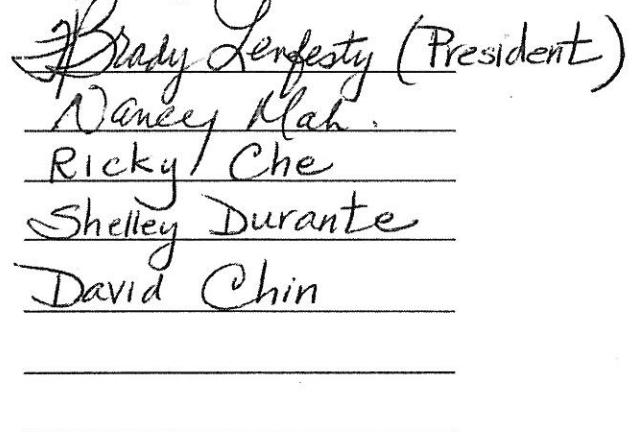 Brady Lenfesty (President)
Nancy Mah.
Ricky Che
Shelley Durante
David Chin